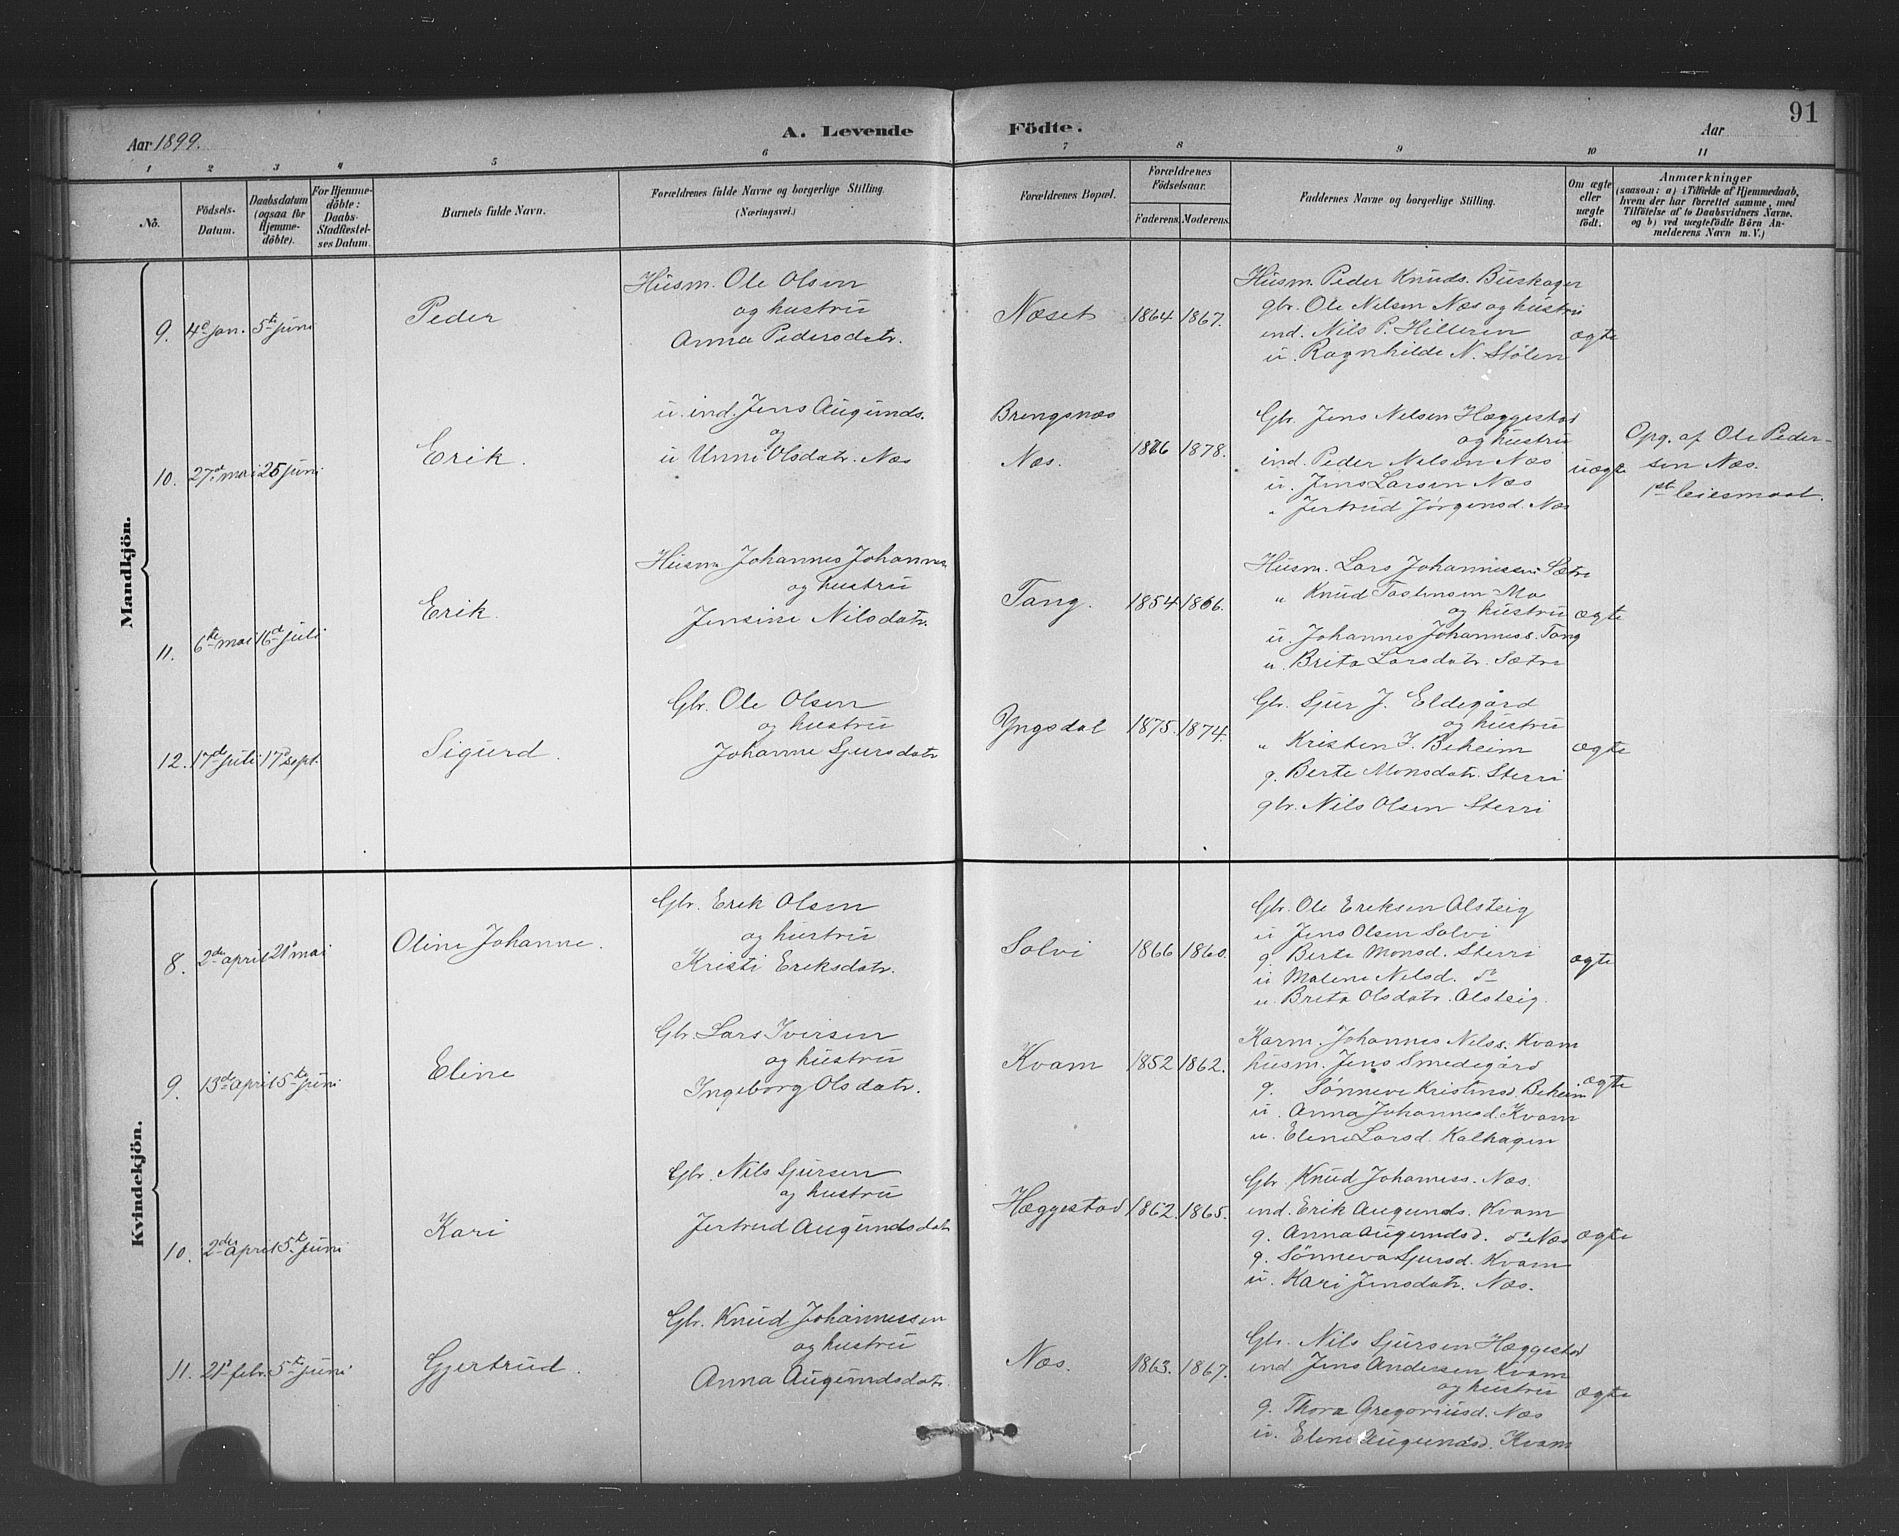 91
Aar 1899.
A. Levende Födte.
Aar
1 2 3 4 5 6 7 8 9 10 11
No.
Födsels-Datum.
Daabsdatum (ogsaa for Hjemmedöbte).
For Hjemmedöbte: Daabs-Stadfæstelses Datum.
Barnets fulde Navn.
Forældrenes fulde Navne og borgerlige Stilling. (Næringsvei.)
Forældrenes Bopæl.
Forældrenes Födselsaar.
Faderens. Moderens.
Faddernes Navne og borgerlige Stilling.
Om ægte eller uægte födt.
Anmærkninger
(saasom: a) i Tilfælde af Hjemmedaab, hvem der har forrettet samme, med Tilföielse af to Daabsvidners Navne, og b) ved uægtefödte Börn Anmelderens Navn m. V.)
Mandkjön.
9. 4d jan. 5te juni
Peder
Husm. Ole Olsen
og hustru
Anna Pedersdatr.
Næset
1864 1867.
Husm. Peder Knuds. Buskager
gbr. Ole Nilsen Næs og hustru
ind. Nils P. Hilleren
u. Ragnhilde N. Stølen
ægte
10. 27d mai 25 juni
Erik.
u. ind. Jens Augunds.
og
u Unni Olsdatr. Næs
Brengsnæs
Næs.
1876 1878.
Gbr. Jens Nilsen Hæggestad
og hustru
ind. Peder Nilsen Næs
u. Jens Larsen Næs
" Jertrud Jørgensd. Næs
uægte
Opg. af Ole Peder-
sen Næs.
1st leiesmaal.
11. 6te mai 16d juli
Erik.
Husm Johannes Johannes
og hustru
Jensine Nilsdatr.
Tang.
1854 1866.
Husm. Lars Johannessen Sætre
" Knud Tostensen Mo
og hustru
u. Johannes Johanness. Tang
u. Brita Larsdatr. Sætre
ægte
12. 17d juli 17d sept.
Sigurd.
Gbr. Ole Olsen
og hustru
Johanne Sjursdatr
Yngsdal
1875. 1874.
Gbr. Sjur J. Eldegård
og hustru
" Kristen I. Beheim
g. Berte Monsdatr. Sterri
gbr. Nils Olsen Sterri
ægte
Kvindekjön.
8. 2den april 21d mai
Oline Johanne.
Gbr. Erik Olsen
og hustru
Kristi Eriksdatr.
Solvi
1866 1860.
Gbr. Ole Eriksen Alsteig
u Jens Olsen Solvi
g. Berte Monsd. Sterri
u Malene Nilsd. do
u. Brita Olsdatr. Alsteig.
ægte
9. 13d april 5te juni
Eline
Gbr. Lars Iversen
og hustru
Ingeborg Olsdatr.
Kvam
1852 1862.
Karm. Johannes Nilss. Kvam
husm. Jens Smedegård
g. Sønneve Kristensd. Beheim
u. Anna Johannesd. Kvam
u. Eline Larsd. Kalhagen
ægte
10. 2den april 5te juni
Kari
Gbr. Nils Sjursen
og hustru
Jertrud Augundsdatr
Hæggestad
1862. 1865.
Gbr Knud Johanness. Næs.
ind. Erik Augunds. Kvam
g. Anna Augundsd. do Næs
g. Sønneva Sjursd. Kvam
u. Kari Jensdatr. Næs.
ægte
11. 21d febr. 5te juni
Gjertrud.
Gbr. Knud Johannessen
og hustru
Anna Augundsdatr.
Næs.
1863. 1867.
Gbr. Nils Sjursen Hæggestad
ind Jens Andersen Kvam
og hustru
g. Thora Gregoriusd. Næs
u. Eline Augundsd. Kvam
ægte